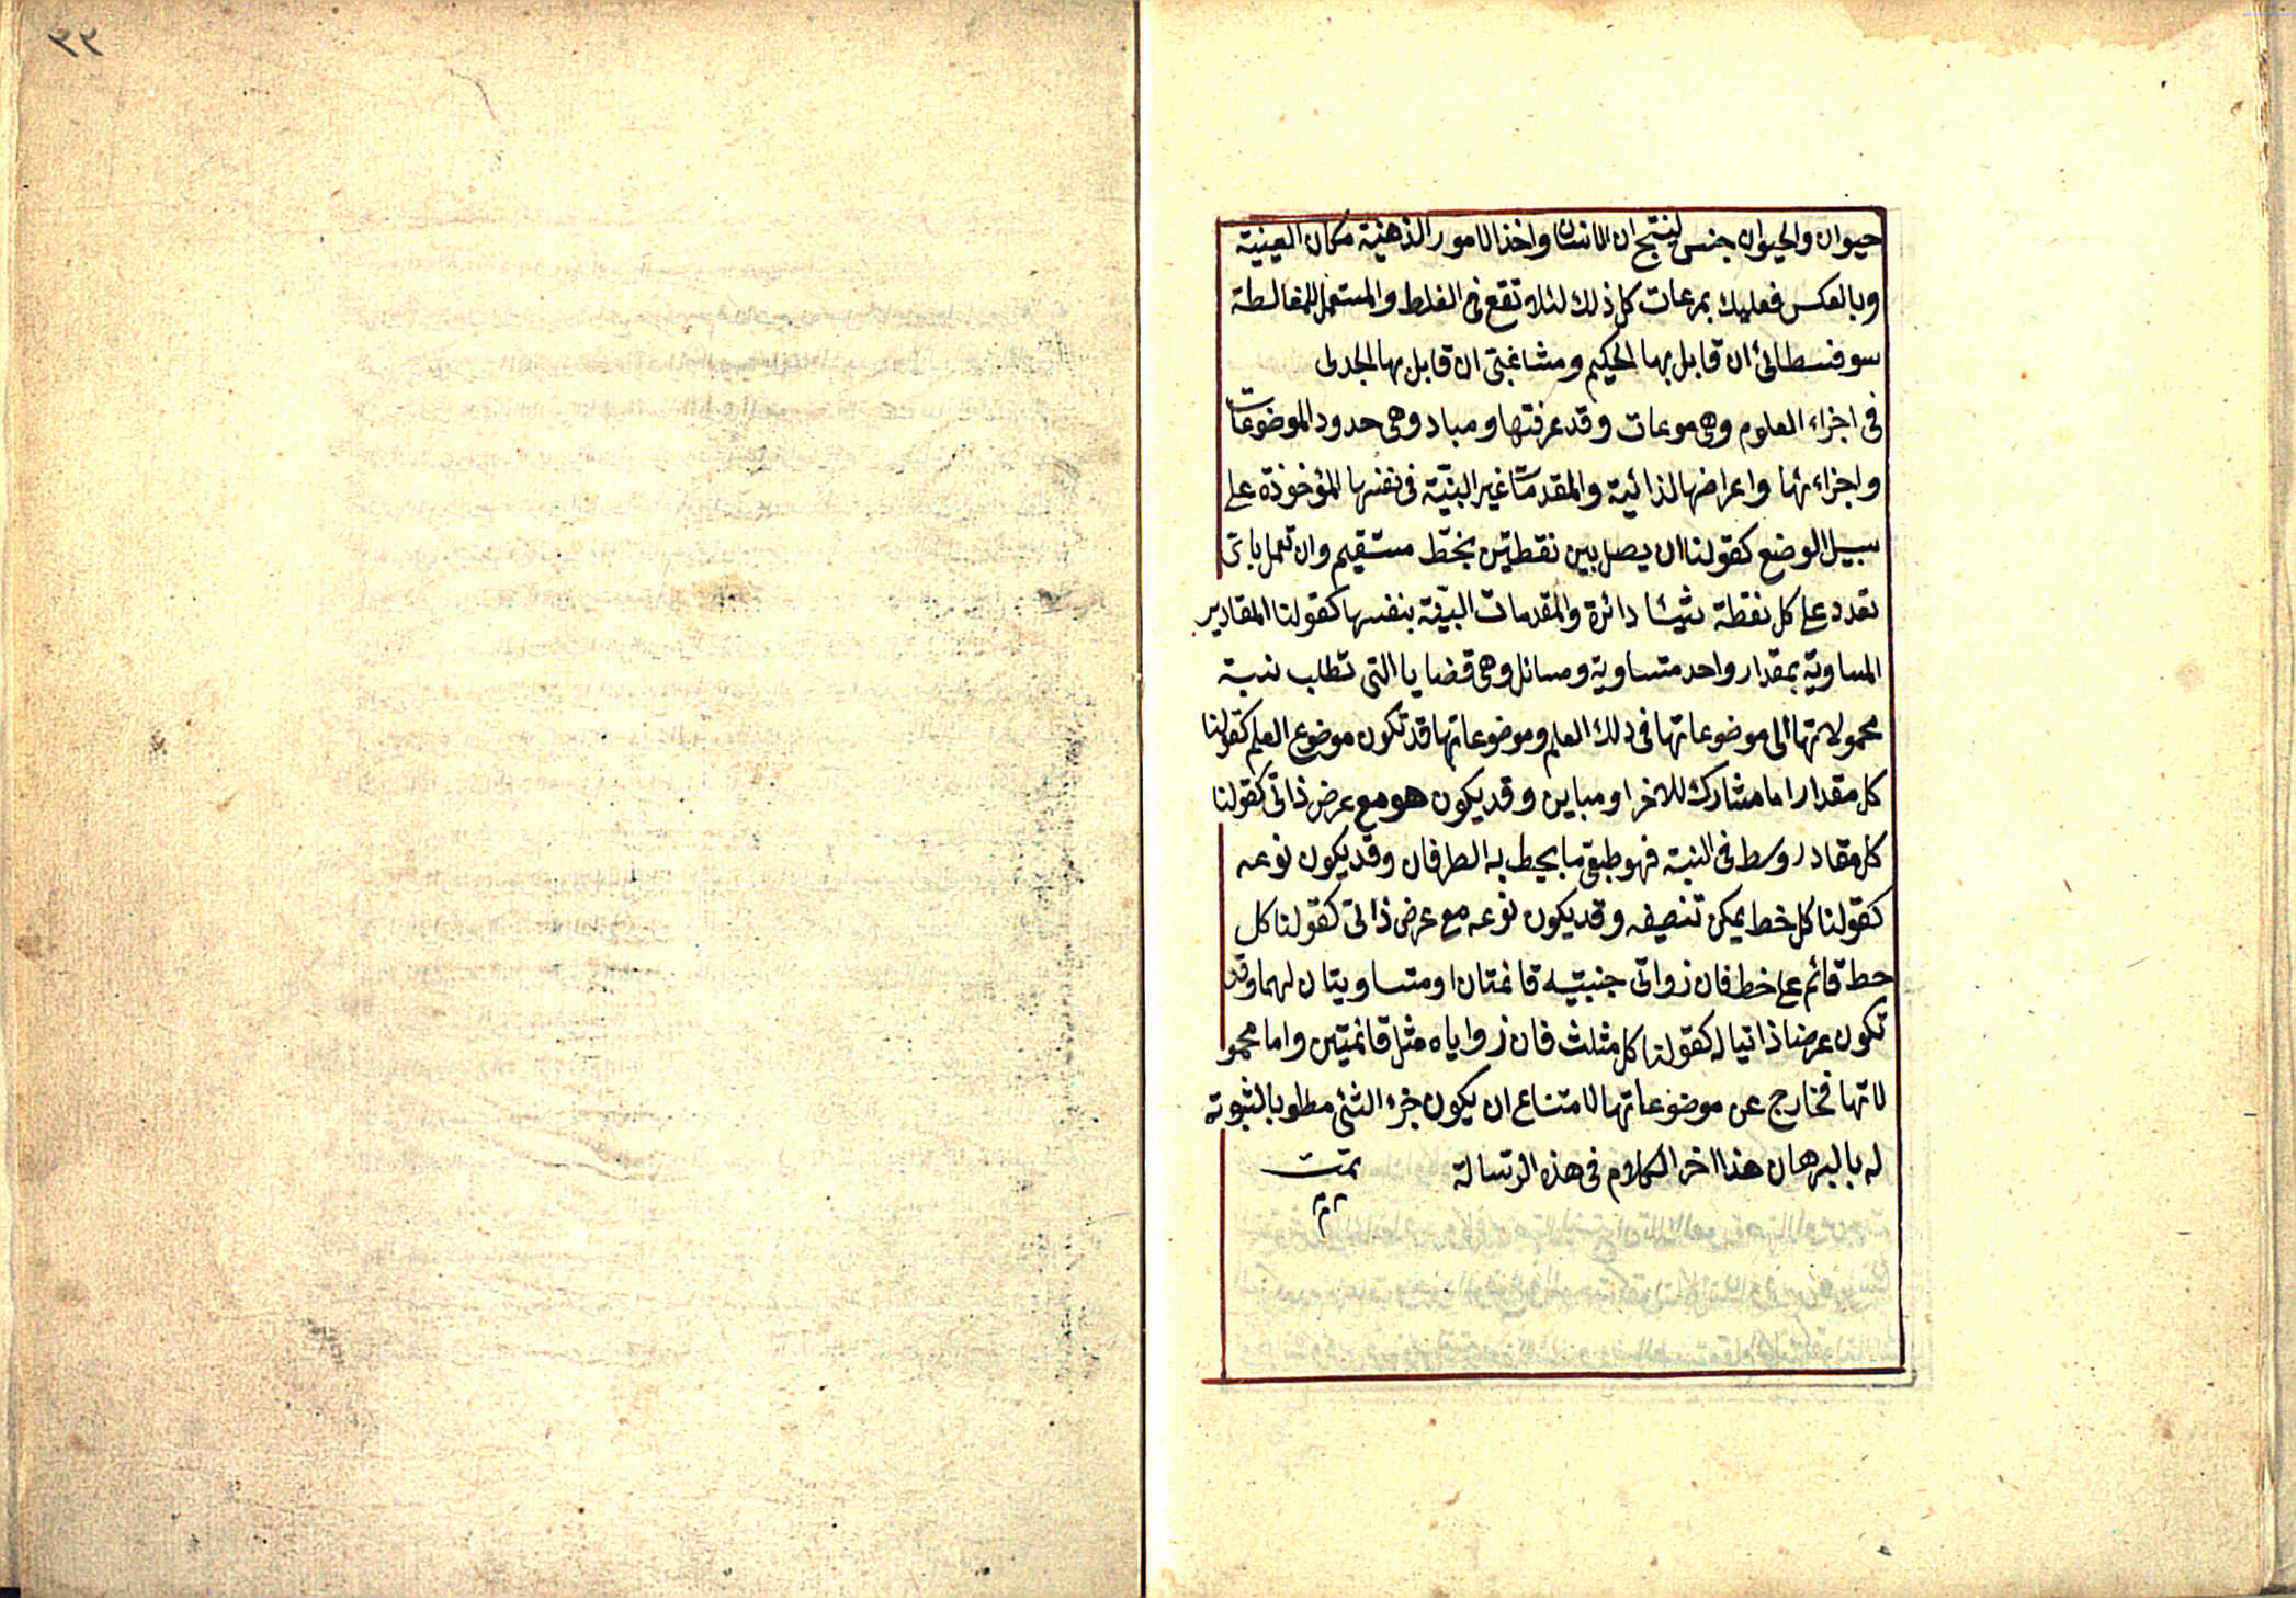 حيوان والحيوان جنس لينتج ان الانسان واخذ الامور الذهنية مكان العينية
وبالعكس فعليك بمرعات كل ذلك لئلا تقع فى الغلط والمستعمل للمغالطة
سوفسطائى ان قابل بها الحكيم ومشاغبتى ان قابل بها الجدلى
فى اجزاء العلوم وهى موعات وقد عرفتها ومباد وهى حدود الموضوعات
واجزاءئها واعراضها الذائية والمقدمات غير البنيّة فى نفسها المؤخوذة على
سبيل الوضع كقولنا ان يصل بين نقطتين بخطّ مستقيم وان تعمل باىّ
تعدد على كل نقطة شيئا دائرة والمقدمات البيّنة بنفسها كقولنا المقادير
المساوية بمقدار واحد متساوية ومسائل وهى قضايا التى تطلب نسبة
محمولاتها الى موضوعاتها فى ذلك العلم وموضوعاتها قد تكون موضوع العلم كقولنا
كل مقدار اما مشارك للاخر او مباين وقد يكون هو مع عرض ذاتى كقولنا
كل مقادر وسط فى النسبة فهو طبقى ما يحيط به الطرفان وقد يكون نوعه
كقولنا كل خط يمكن تنصيفه وقد يكون نوعه مع عرض ذاتى كقولنا كل
خط قائم على خط فان زواتى جنبتيه قائمتان او متساويتان لهما وقد
تكون عرضا ذاتيا له كقولنا كل مثلث فان زواياه مثل قائمتين واما محمو
لاتها فخارج عن موضوعاتها لامتناع ان يكون جزء الشئى مطلوبا لثبوته
له بالبرهان هذا اخر الكلام فى هذه الرسالة تمت
م م م
٣٣